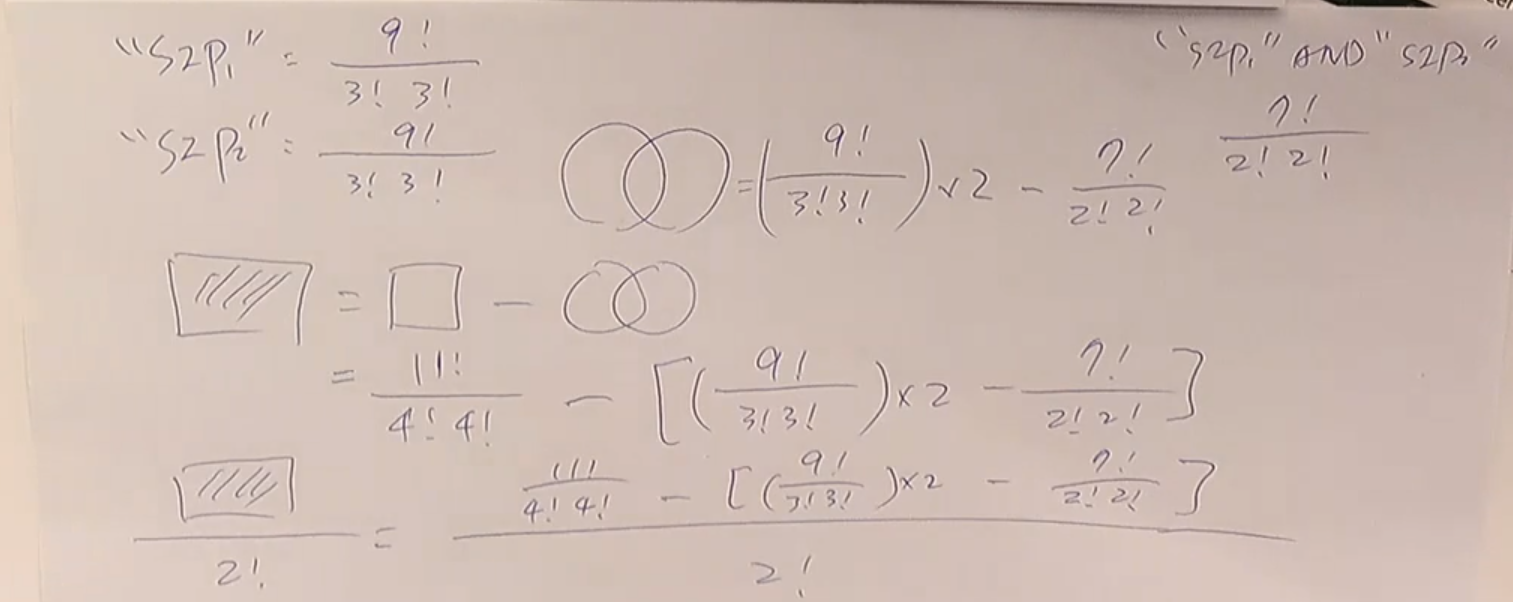 "S2P₁" = 9! / 3! 3!
"S2P₁" AND "S2P₂"
7! / 2! 2!
"S2P₂" = 9! / 3! 3!
= (9! / 3! 3!) × 2 - 7! / 2! 2!
= -
= 11! / 4! 4! - [(9! / 3! 3!) × 2 - 7! / 2! 2!]
/ 2! = 11! / 4! 4! - [(9! / 3! 3!) × 2 - 7! / 2! 2!] / 2!